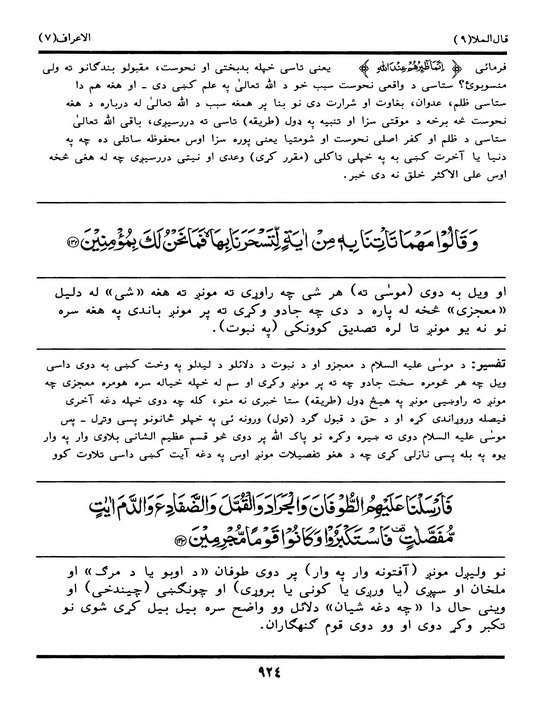 قال الملا(۹)
الاعراف(۷)
فرمائی ﴿ اِنَّمَا طٰٓئِرُهُمْ عِنْدَ اللّٰهِ ﴾ یعنی تاسی خپله بدبختی او نحوست، مقبولو بندگانو ته ولی
منسوبوئ؟ ستاسی د واقعی نحوست سبب خو د الله تعالیٰ په علم کښی دی ـ او هغه هم دا
ستاسی ظلم، عدوان، بغاوت او شرارت دی نو بنا پر همغه سبب د الله تعالیٰ له درباره د هغه
نحوست څه برخه د موقتی سزا او تنبیه په ډول (طریقه) تاسی ته دررسیږی، باقی الله تعالیٰ
ستاسی د ظلم او کفر اصلی نحوست او شومتیا یعنی پوره سزا اوس محفوظه ساتلی ده چه په
دنیا یا آخرت کښی به په خپلی ټاکلی (مقرر کړی) وعدی او نبتی دررسیږی چه له هغی څخه
اوس علی الاکثر خلق نه دی خبر.
وَقَالُوْا مَهْمَا تَاْتِنَا بِهٖ مِنْ اٰيَةٍ لِّتَسْحَرَنَا بِهَا ۙ فَمَا نَحْنُ لَكَ بِمُؤْمِنِيْنَ ۝۱۳۲
او ویل به دوی (موسٰی ته) هر شی چه راوړی ته مونږ ته هغه «شی» له دلیل
«معجزی» څخه له پاره د دی چه جادو وکړی ته پر مونږ باندی په هغه سره
نو نه یو مونږ تا لره تصدیق کوونکی (په نبوت).
تفسیر: د موسٰی علیه السلام د معجزو او د نبوت د دلائلو د لیدلو په وخت کښی به دوی داسی
ویل چه هر څومره سخت جادو چه ته پر مونږ وکړی او سم له خپله خیاله سره هومره معجزی چه
مونږ ته راوښیی مونږ په هیڅ ډول (طریقه) ستا خبری نه منو، کله چه دوی خپله دغه آخری
فیصله وروړاندی کړه او د حق د قبول گرد (ټول) ورونه ئی په خپلو ځانونو پسی وتړل ـ پس
موسٰی علیه السلام دوی ته ښیره وکړه نو پاک الله پر دوی څو قسم عظیم الشانی بلاوی وار په وار
یوه په بله پسی نازلی کړی چه د هغو تفصیلات مونږ اوس په دغه آیت کښی داسی تلاوت کوو
فَاَرْسَلْنَا عَلَيْهِمُ الطُّوْفَانَ وَالْجَرَادَ وَالْقُمَّلَ وَالضَّفَادِعَ وَالدَّمَ اٰيٰتٍ
مُّفَصَّلٰتٍ ۣ فَاسْتَكْبَرُوْا وَكَانُوْا قَوْمًا مُّجْرِمِيْنَ ۝۱۳۳
نو ولیږل مونږ (آفتونه وار په وار) پر دوی طوفان «د اوبو یا د مرگ» او
ملخان او سپږی (یا وریږی یا کونی یا بروړی) او چونگښی (چیندخی) او
وینی حال دا «چه دغه شیان» دلائل وو واضح سره بیل بیل کړی شوی نو
تکبر وکړ دوی او وو دوی قوم گنهگاران.
۹۲٤